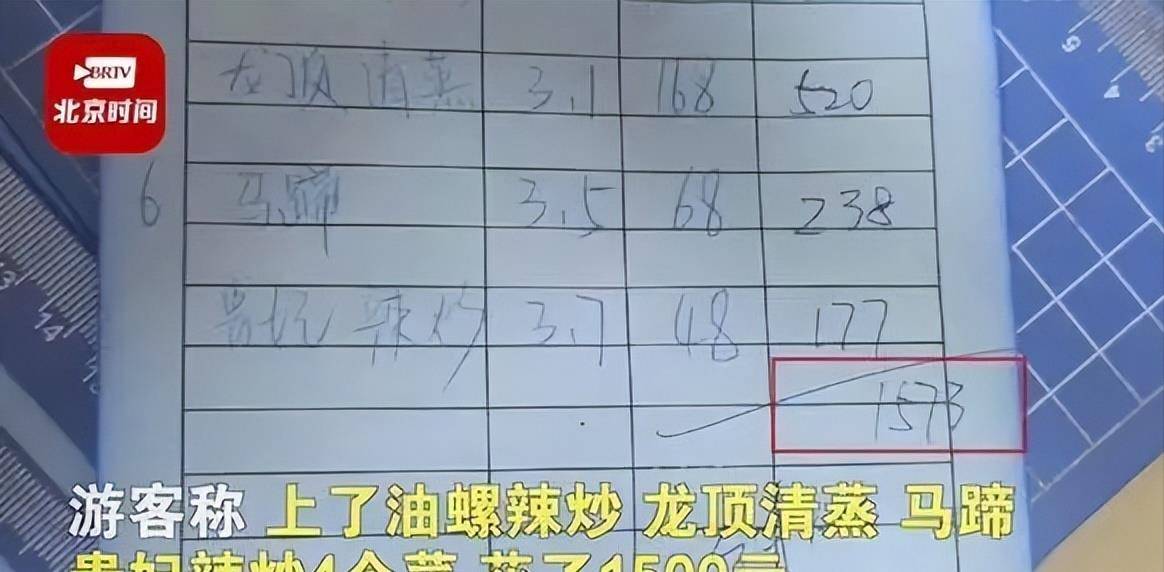 BRTV
北京时间
龙顶 清蒸 3.1 168 520
6 马蹄 3.5 68 238
贵妃 辣炒 3.7 48 177
1573
游客称 上了油螺辣炒 龙顶清蒸 马蹄
贵妃辣炒4个菜 花了1500元